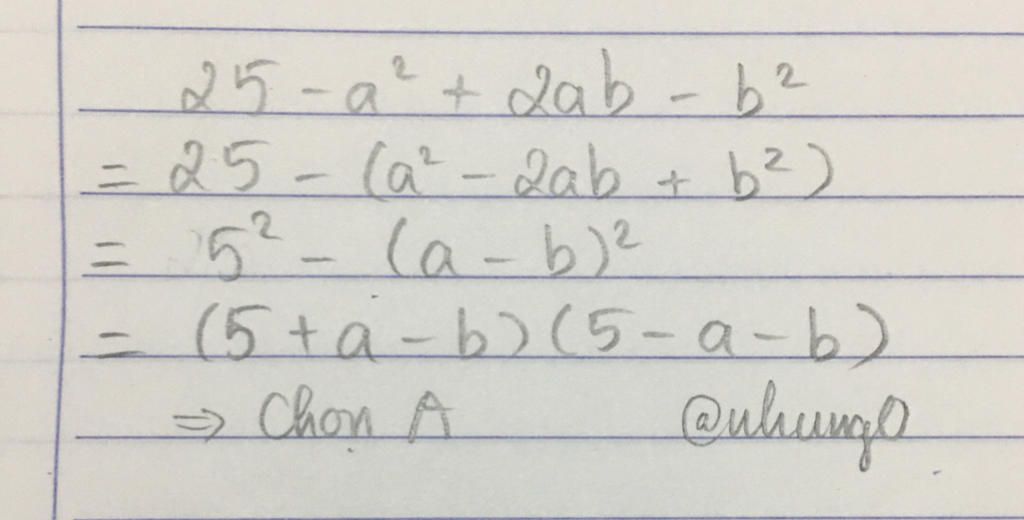 25 - a² + 2ab - b²
= 25 - (a² - 2ab + b²)
= 5² - (a - b)²
= (5 + a - b)(5 - a - b)
⇒ Chọn A @nhung0